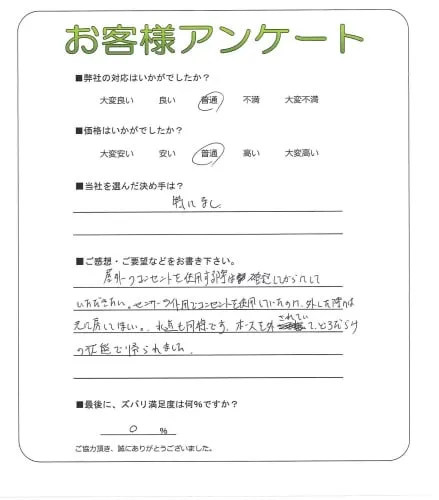 お客様アンケート
■弊社の対応はいかがでしたか？
大変良い 良い 普通 不満 大変不満
■価格はいかがでしたか？
大変安い 安い 普通 高い 大変高い
■当社を選んだ決め手は？
特になし
■ご感想・ご要望などをお書き下さい。
屋外のコンセントを使用する際は 確認してからにして
いただきたい。センサーライト用でコンセントを使用していたのに、外した際は
元に戻してほしい。水道も同様です。ホースを外されていて、どろだらけ
の状態で帰られました。
■最後に、ズバリ満足度は何％ですか？
0 ％
ご協力頂き、誠にありがとうございました。